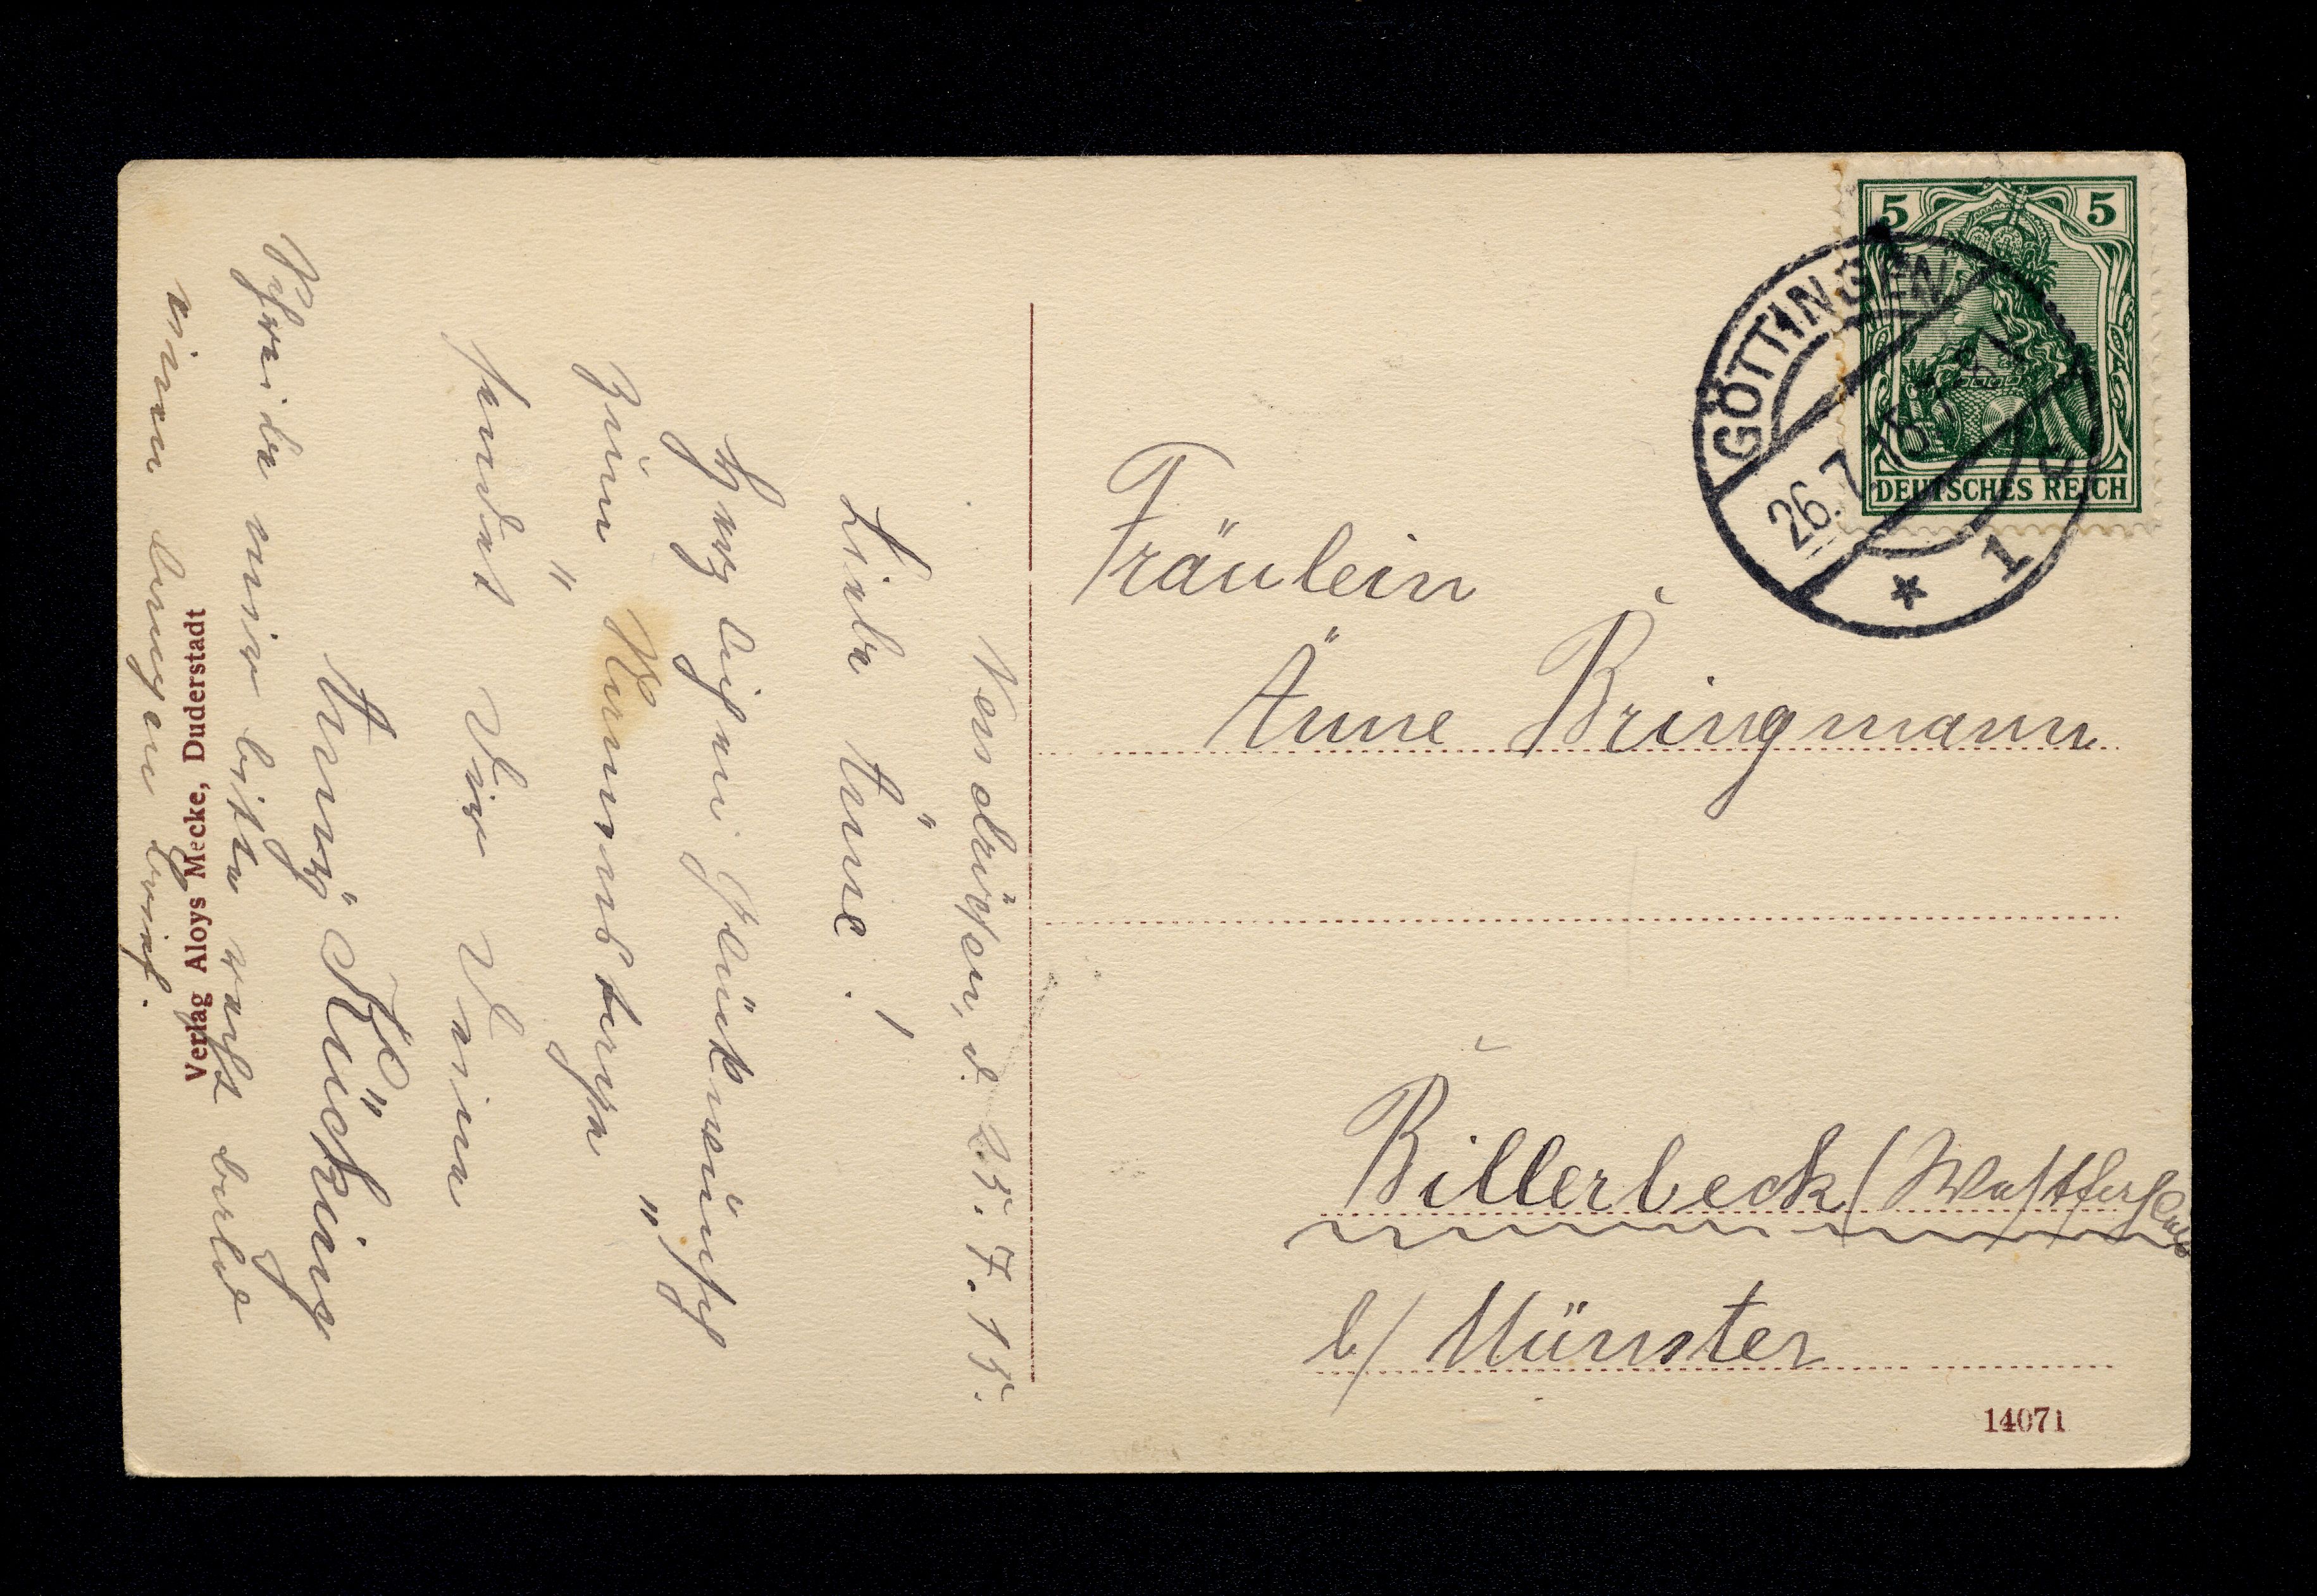 Wendrüßen, d. 25. 7. 15.
Liebe Änne!
Herzlichen Glückwunsch
zum "Namenstage"
sendet Dir Deine
Änny Kücking
Schreibe mir bitte recht bald
einen langen Brief.
Verlag Aloys Mecke, Duderstadt
5 5
DEUTSCHES REICH
GÖTTINGEN
26.7
1
Fräulein
Änne Bringmann
Billerbeck (Westfalen)
b/ Münster
14071